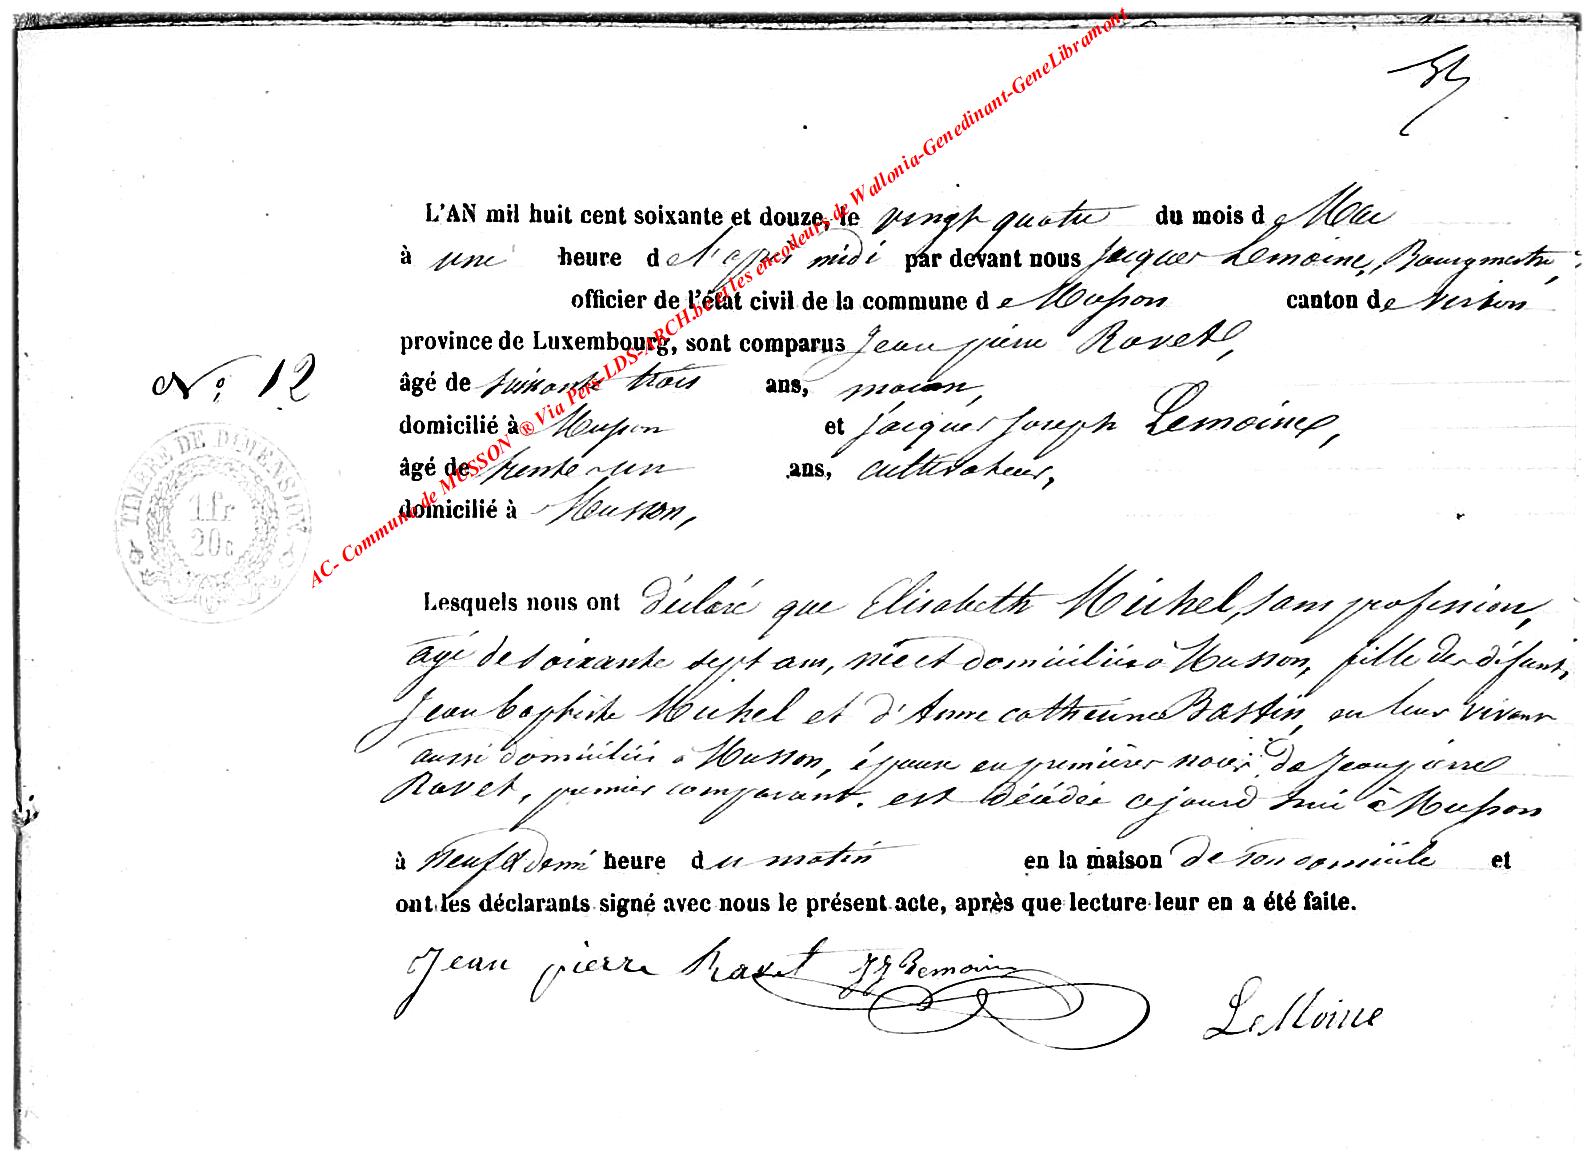 L'AN mil huit cent soixante et douze, le vingt quatre du mois de Mai
à une heure de l'après midi par devant nous Jacques Lemoine, Bourgmestre,
officier de l'état civil de la commune de Musson canton de Virton
province de Luxembourg, sont comparus Jean pierre Ravet,
N.o 12
âgé de soixante trois ans, maçon,
domicilié à Musson et Jacques Joseph Lemoine,
âgé de trente-un ans, cultivateur,
domicilié à Musson,
TIMBRE DE DIMENSION
1 fr
20 c
AC- Commune de MUSSON ® Via Pers-LDS-ARCH.be et les encodeurs de Wallonia-Genedinant-GeneLibramont
Lesquels nous ont déclaré que Elisabeth Michel, sans profession,
agé de soixante sept ans, née et domiciliée à Musson, fille des défunts,
Jean baptiste Michel et d'Anne catherine Bastin, en leur vivant
aussi domiciliés à Musson, épouse en premières noces de Jean pierre
Ravet, premier comparant. est décédée ce jourd'hui à Musson
à neuf & demi heure du matin en la maison de son domicile et
ont les déclarants signé avec nous le présent acte, après que lecture leur en a été faite.
Jean pierre Ravet JJ Lemoine
LeMoine